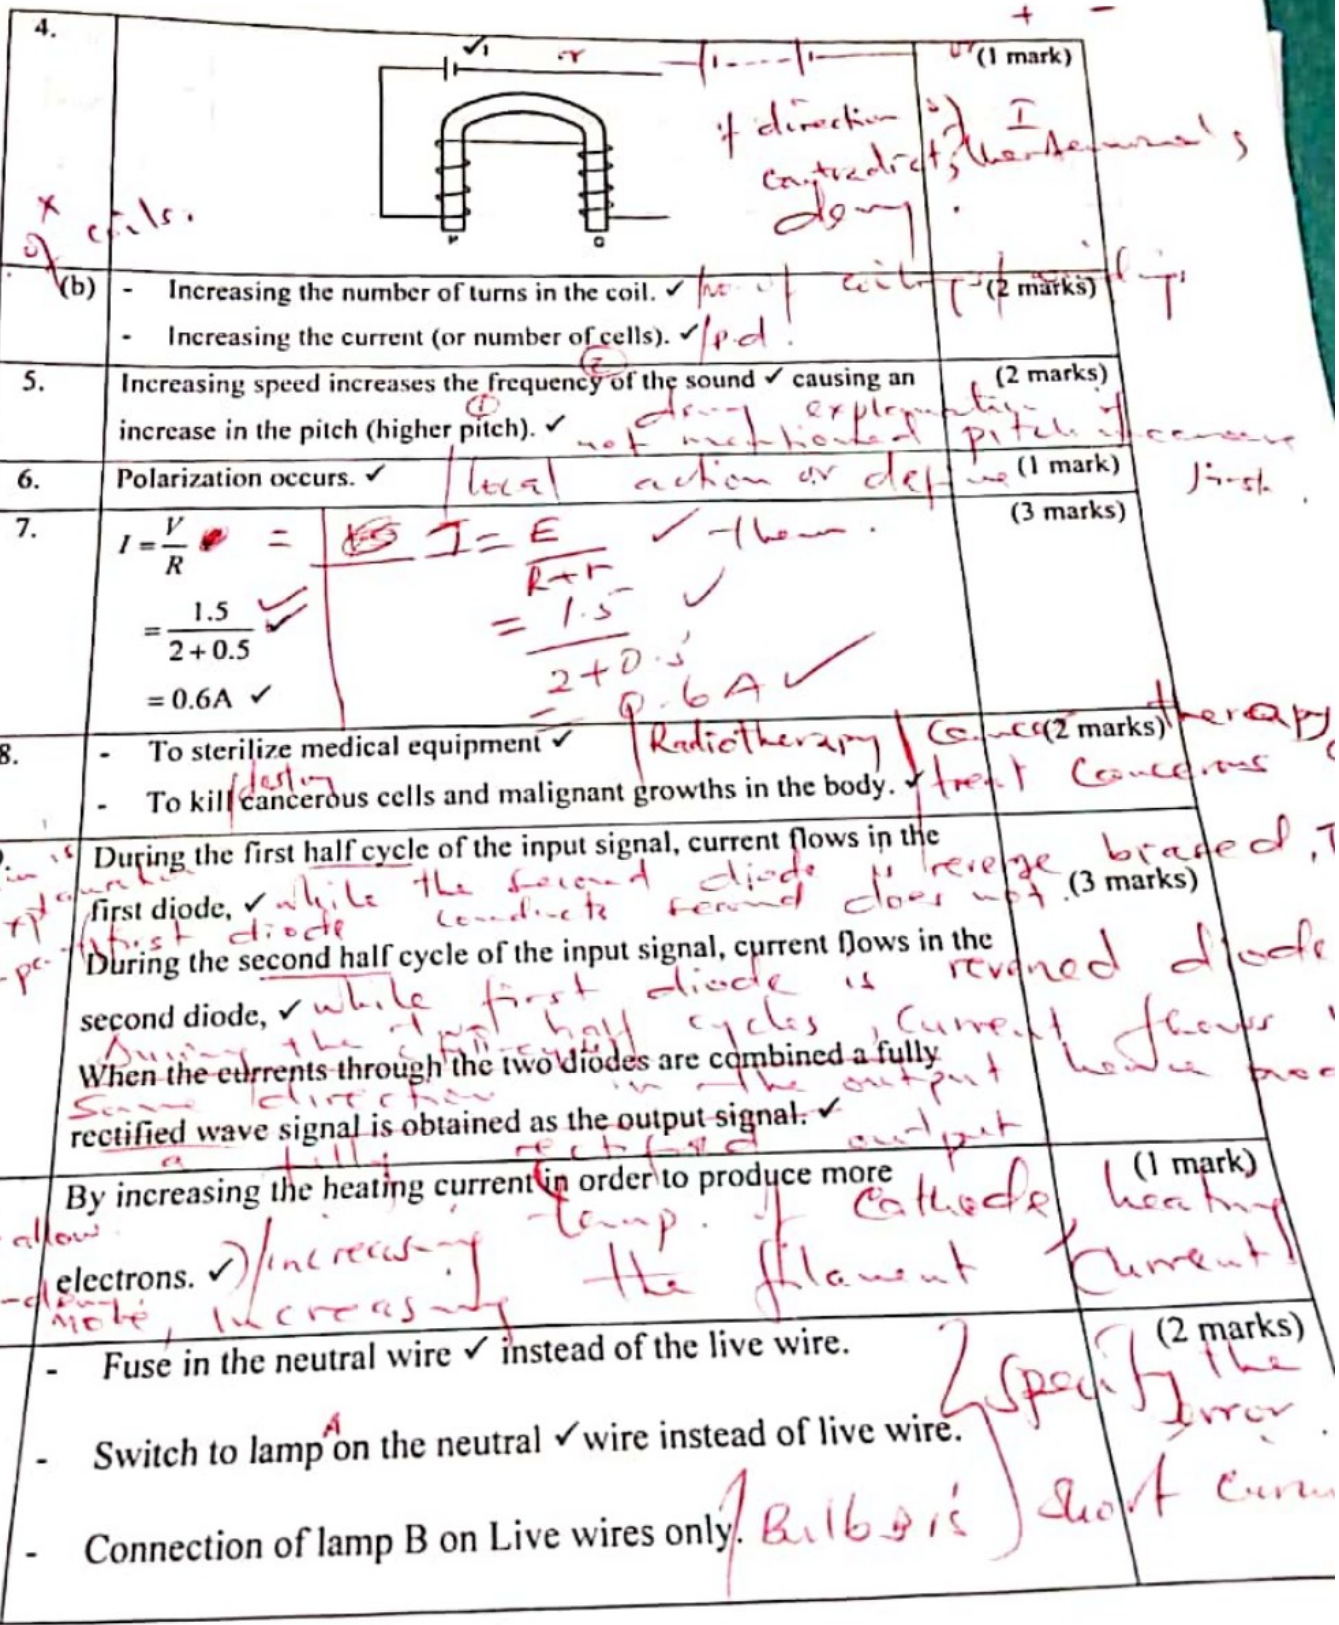 + -
4.
✓1
(1 mark)
if direction of I
contradicts the terminals
deny.
P Q
x
of coils.
(b) - Increasing the number of turns in the coil. ✓ /no. of (2 marks)
- Increasing the current (or number of cells). ✓/p.d.
②
5. Increasing speed increases the frequency of the sound ✓ causing an (2 marks)
①
increase in the pitch (higher pitch). ✓ deny explanation if
not mentioned pitch first.
6. Polarization occurs. ✓ /local action or define (1 mark)
7. I = V/R = I = E/(R+r) ✓ (3 marks)
= 1.5/(2 + 0.5) ✓✓ = 1.5/(2+0.5) ✓
= 0.6A ✓ = 0.6A ✓
8. - To sterilize medical equipment ✓ /Radiotherapy / Cancer therapy (2 marks)
/destroy
- To kill cancerous cells and malignant growths in the body. ✓ /treat cancerous
During the first half cycle of the input signal, current flows in the
while the second diode is reverse biased, (3 marks)
first diode, ✓
first diode conducts second does not.
During the second half cycle of the input signal, current flows in the
second diode, ✓ while first diode is diode
During the two half cycles, current flows
When the currents through the two diodes are combined a fully
same direction in the output hence
rectified wave signal is obtained as the output signal. ✓
a fully rectified output
By increasing the heating current in order to produce more (1 mark)
allow temp. of cathode, heating
electrons. ✓) /increasing the filament current)
Note, increasing
- Fuse in the neutral wire ✓ instead of the live wire. (2 marks)
specify the
error.
A
- Switch to lamp on the neutral ✓ wire instead of live wire.
- Connection of lamp B on Live wires only. /Bulb B is short